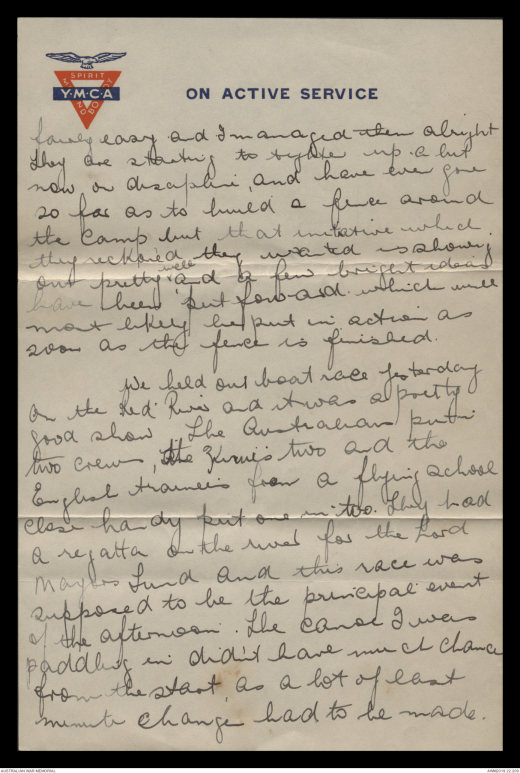 SPIRIT
MIND BODY
Y·M·C·A
ON ACTIVE SERVICE
fairly easy and I managed them alright
They are starting to tighten up a bit
now on disapline, and have even gone
so far as to build a fence around
the camp but that initative which
they reckoned they wanted is showing
out pretty well and a few bright ideas
have been put forward which will
most likely be put in action as
soon as the fence is finished.
We held our boat race yesterday
on the Red River and it was a pretty
good show. The Australians put in
two crews, the Kiwis two and the
English trainees from a flying school
close handy put one in two. They had
a regatta on the river for the Lord
Mayors Fund and this race was
supposed to be the principal event
of the afternoon. The canoe I was
paddling in didn't have much chance
from the start, as a lot of last
minute change had to be made.
AUSTRALIAN WAR MEMORIAL